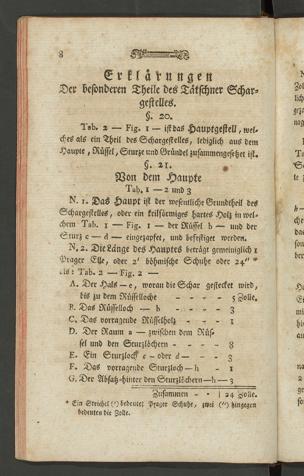 8
Erklärungen
Der besonderen Theile des Tätschner Schar-
gestelles.
§. 20.
Tab. 2 — Fig. 1 — ist das Hauptgestell, wel-
ches als ein Theil des Schargestelles, lediglich aus dem
Haupte, Rüssel, Sturze und Gründel zusammengesetzt ist.
§. 21.
Von dem Haupte
Tab. 1 — 2 und 3
N. 1. Das Haupt ist der wesentliche Grundtheil des
Schargestelles, oder ein keilförmiges hartes Holz in wel-
chem Tab. 1 — Fig. 1 — der Rüssel h — und der
Sturz c — d — eingezapfet, und befestiget werden.
N. 2. Die Länge des Hauptes beträgt gemeiniglich 1
Prager Elle, oder 2' böhmische Schuhe oder 24'' *
als: Tab. 2 — Fig. 2 —
A. Der Hals — e, woran die Schar gesteckt wird,
bis zu dem Rüsselloche — — — 5 Zolle.
B. Das Rüsselloch — h — — 3
C. Das vorragende Rüsselholz — — 1
D. Der Raum a — zwischen dem Rüs-
sel und den Sturzlöchern — — 8
E. Ein Sturzloch c — oder d — — 3
F. Das vorragende Sturzloch — h — 1
G. Der Absatz hinter den Sturzlöchern — h — 3
Zusammen - - | 24 Zolle.
* Ein Strichel (') bedeutet Prager Schuhe, zwei ('') hingegen
bedeuten die Zolle.